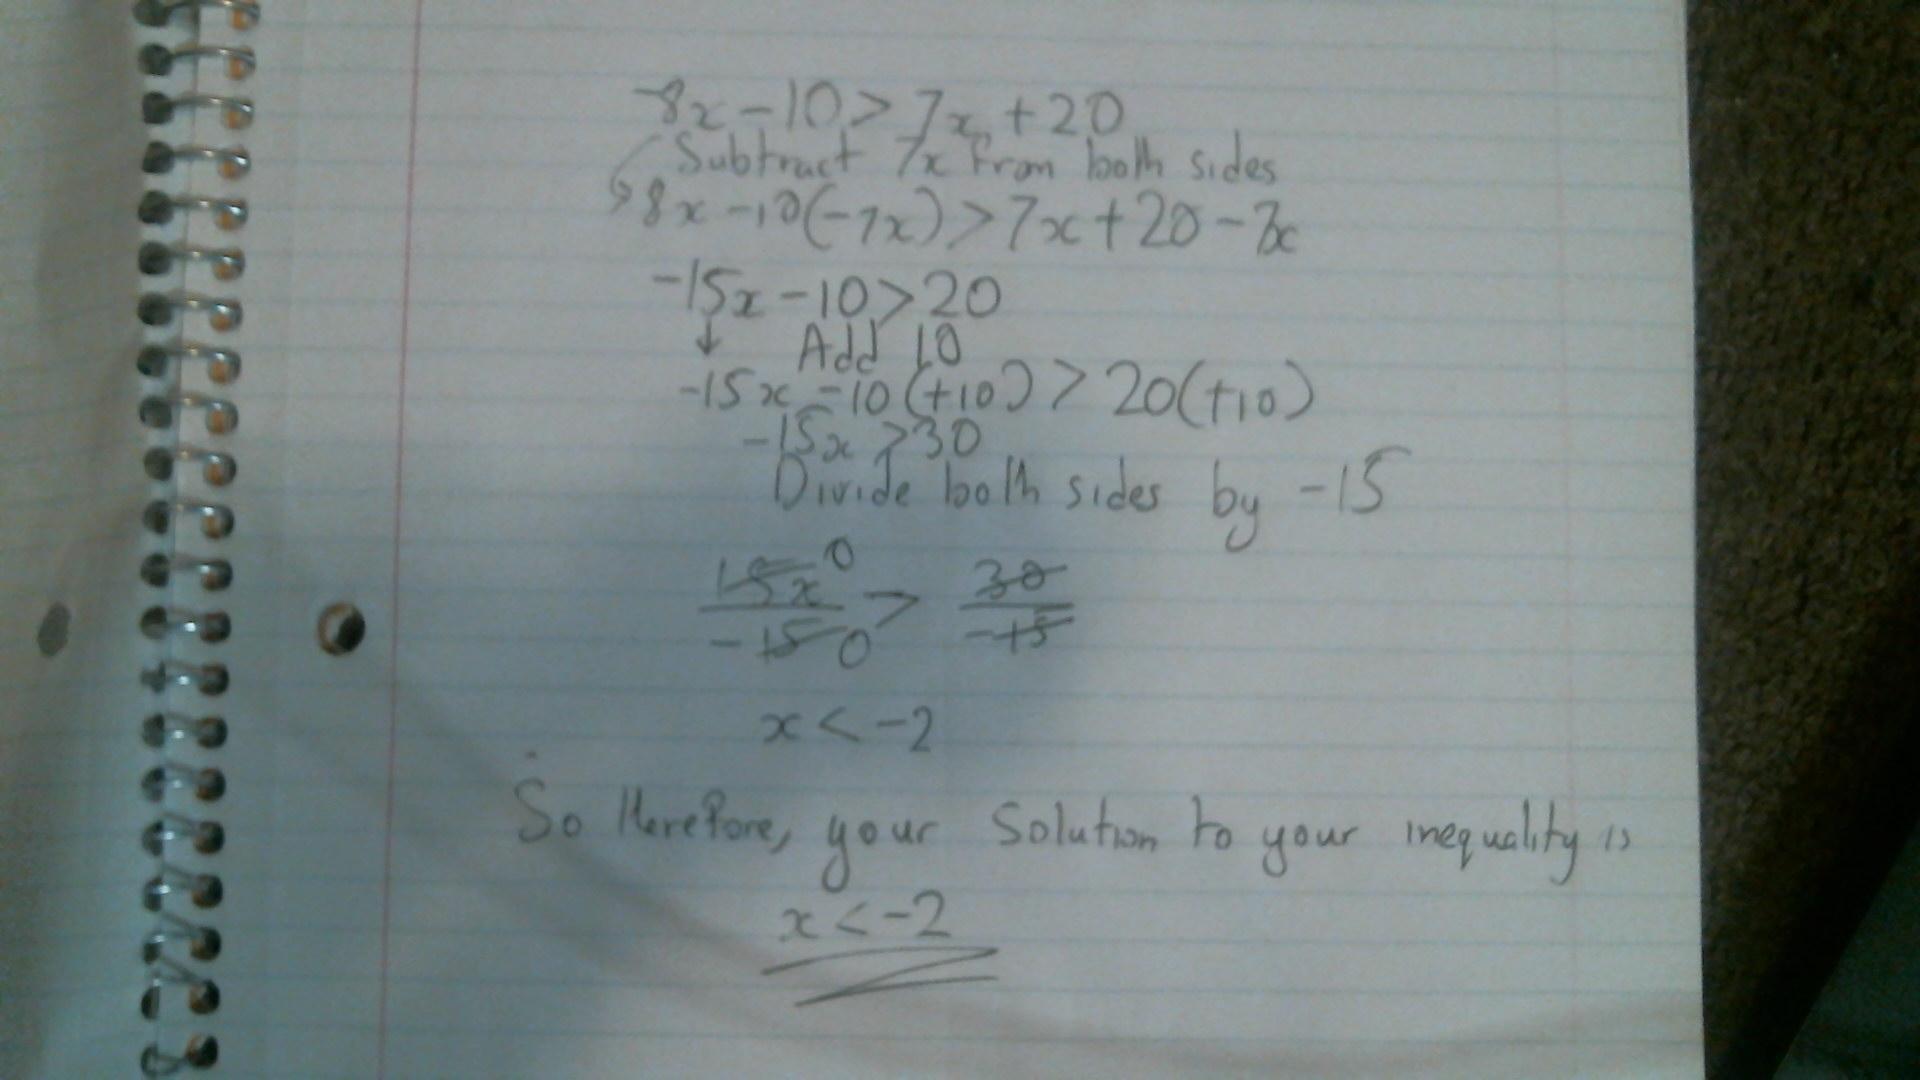 -8x - 10 > 7x + 20
Subtract 7x from both sides
8x - 10(-7x) > 7x + 20 - 7x
-15x - 10 > 20
↓ Add 10
-15x - 10 (+10) > 20(+10)
-15x > 30
Divide both sides by -15
15x 0 > 30
-15 0 -15
x < -2
So therefore, your solution to your inequality is
x < -2